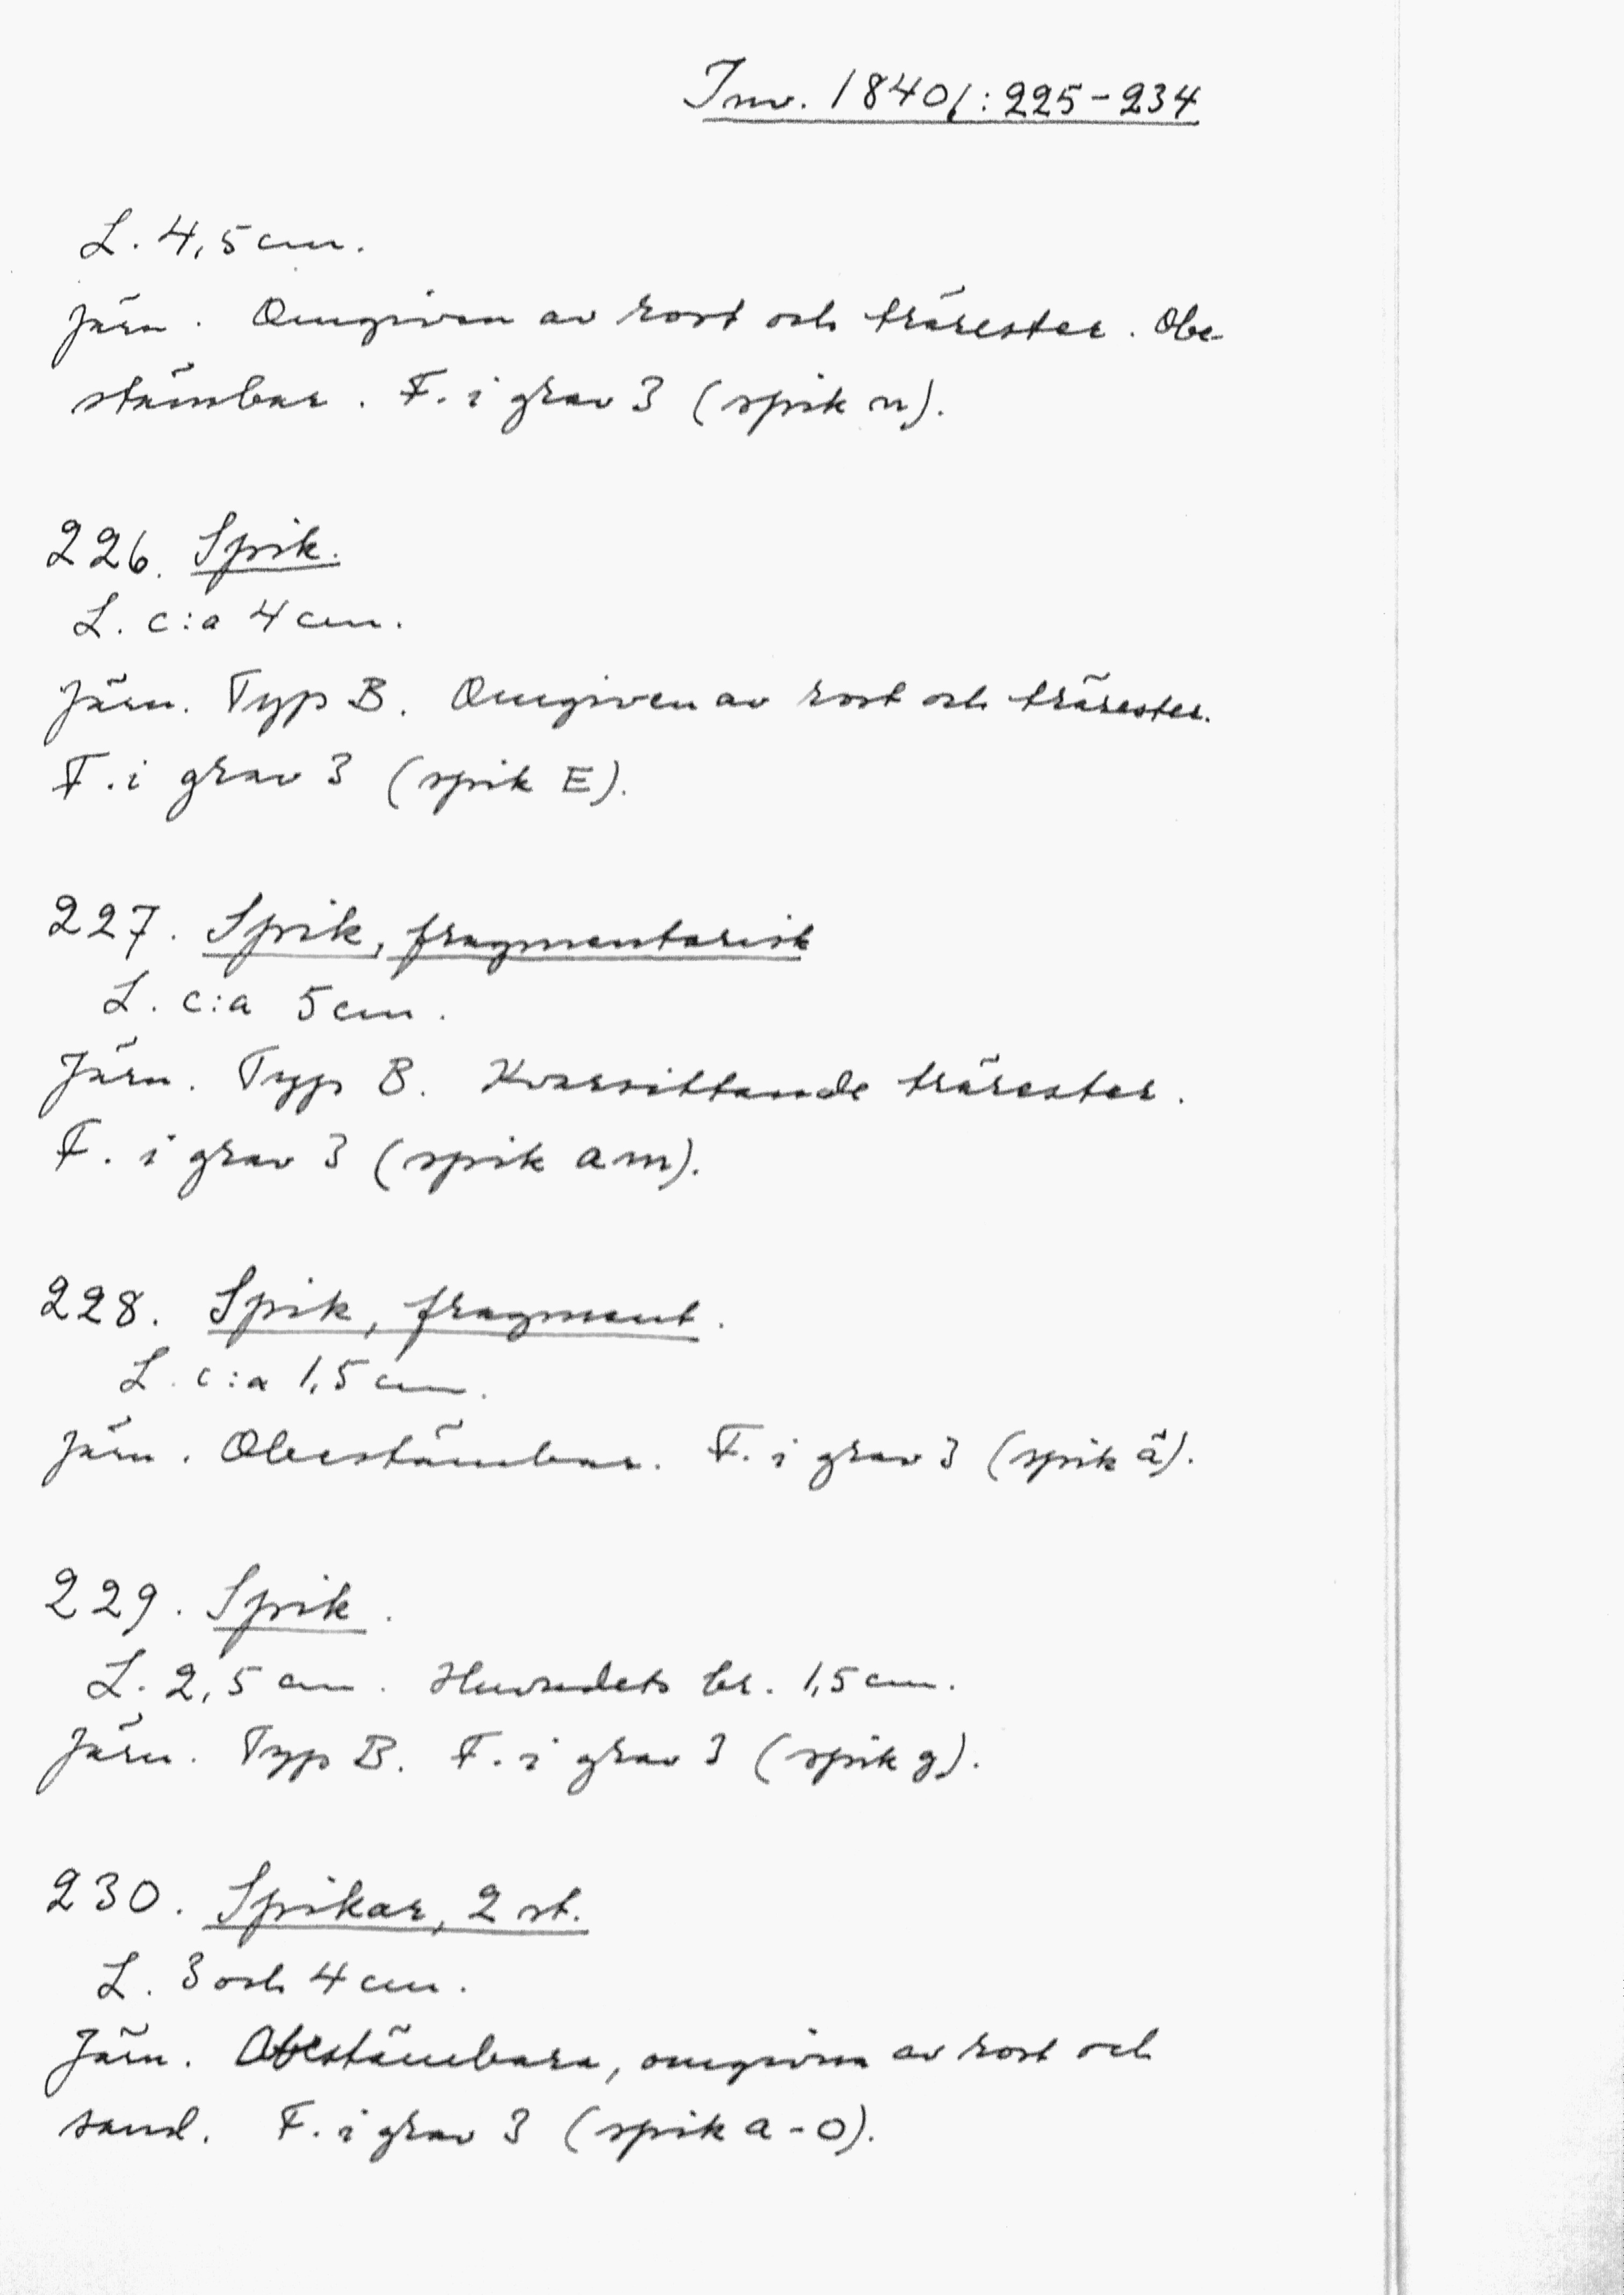 Inv. 18401:225-234
L. 4,5 cm.
Järn. Omgiven av rost och trärester. Obe-
stämbar. F. i grav 3 (spik n).
226. Spik.
L. c:a 4 cm.
Järn. Typ B. Omgiven av rost och trärester.
F. i grav 3 (spik E).
227. Spik, fragmentarisk
L. c:a 5 cm.
Järn. Typ B. Kvarsittande trärester.
F. i grav 3 (spik am).
228. Spik, fragment.
L. c:a 1,5 cm.
Järn. Obestämbar. F. i grav 3 (spik ä).
229. Spik.
L. 2,5 cm. Huvudets br. 1,5 cm.
Järn. Typ B. F. i grav 3 (spik g).
230. Spikar, 2 st.
L. 3 och 4 cm.
Järn. Obestämbara, omgivna av rost och
sand. F. i grav 3 (spik a-o).